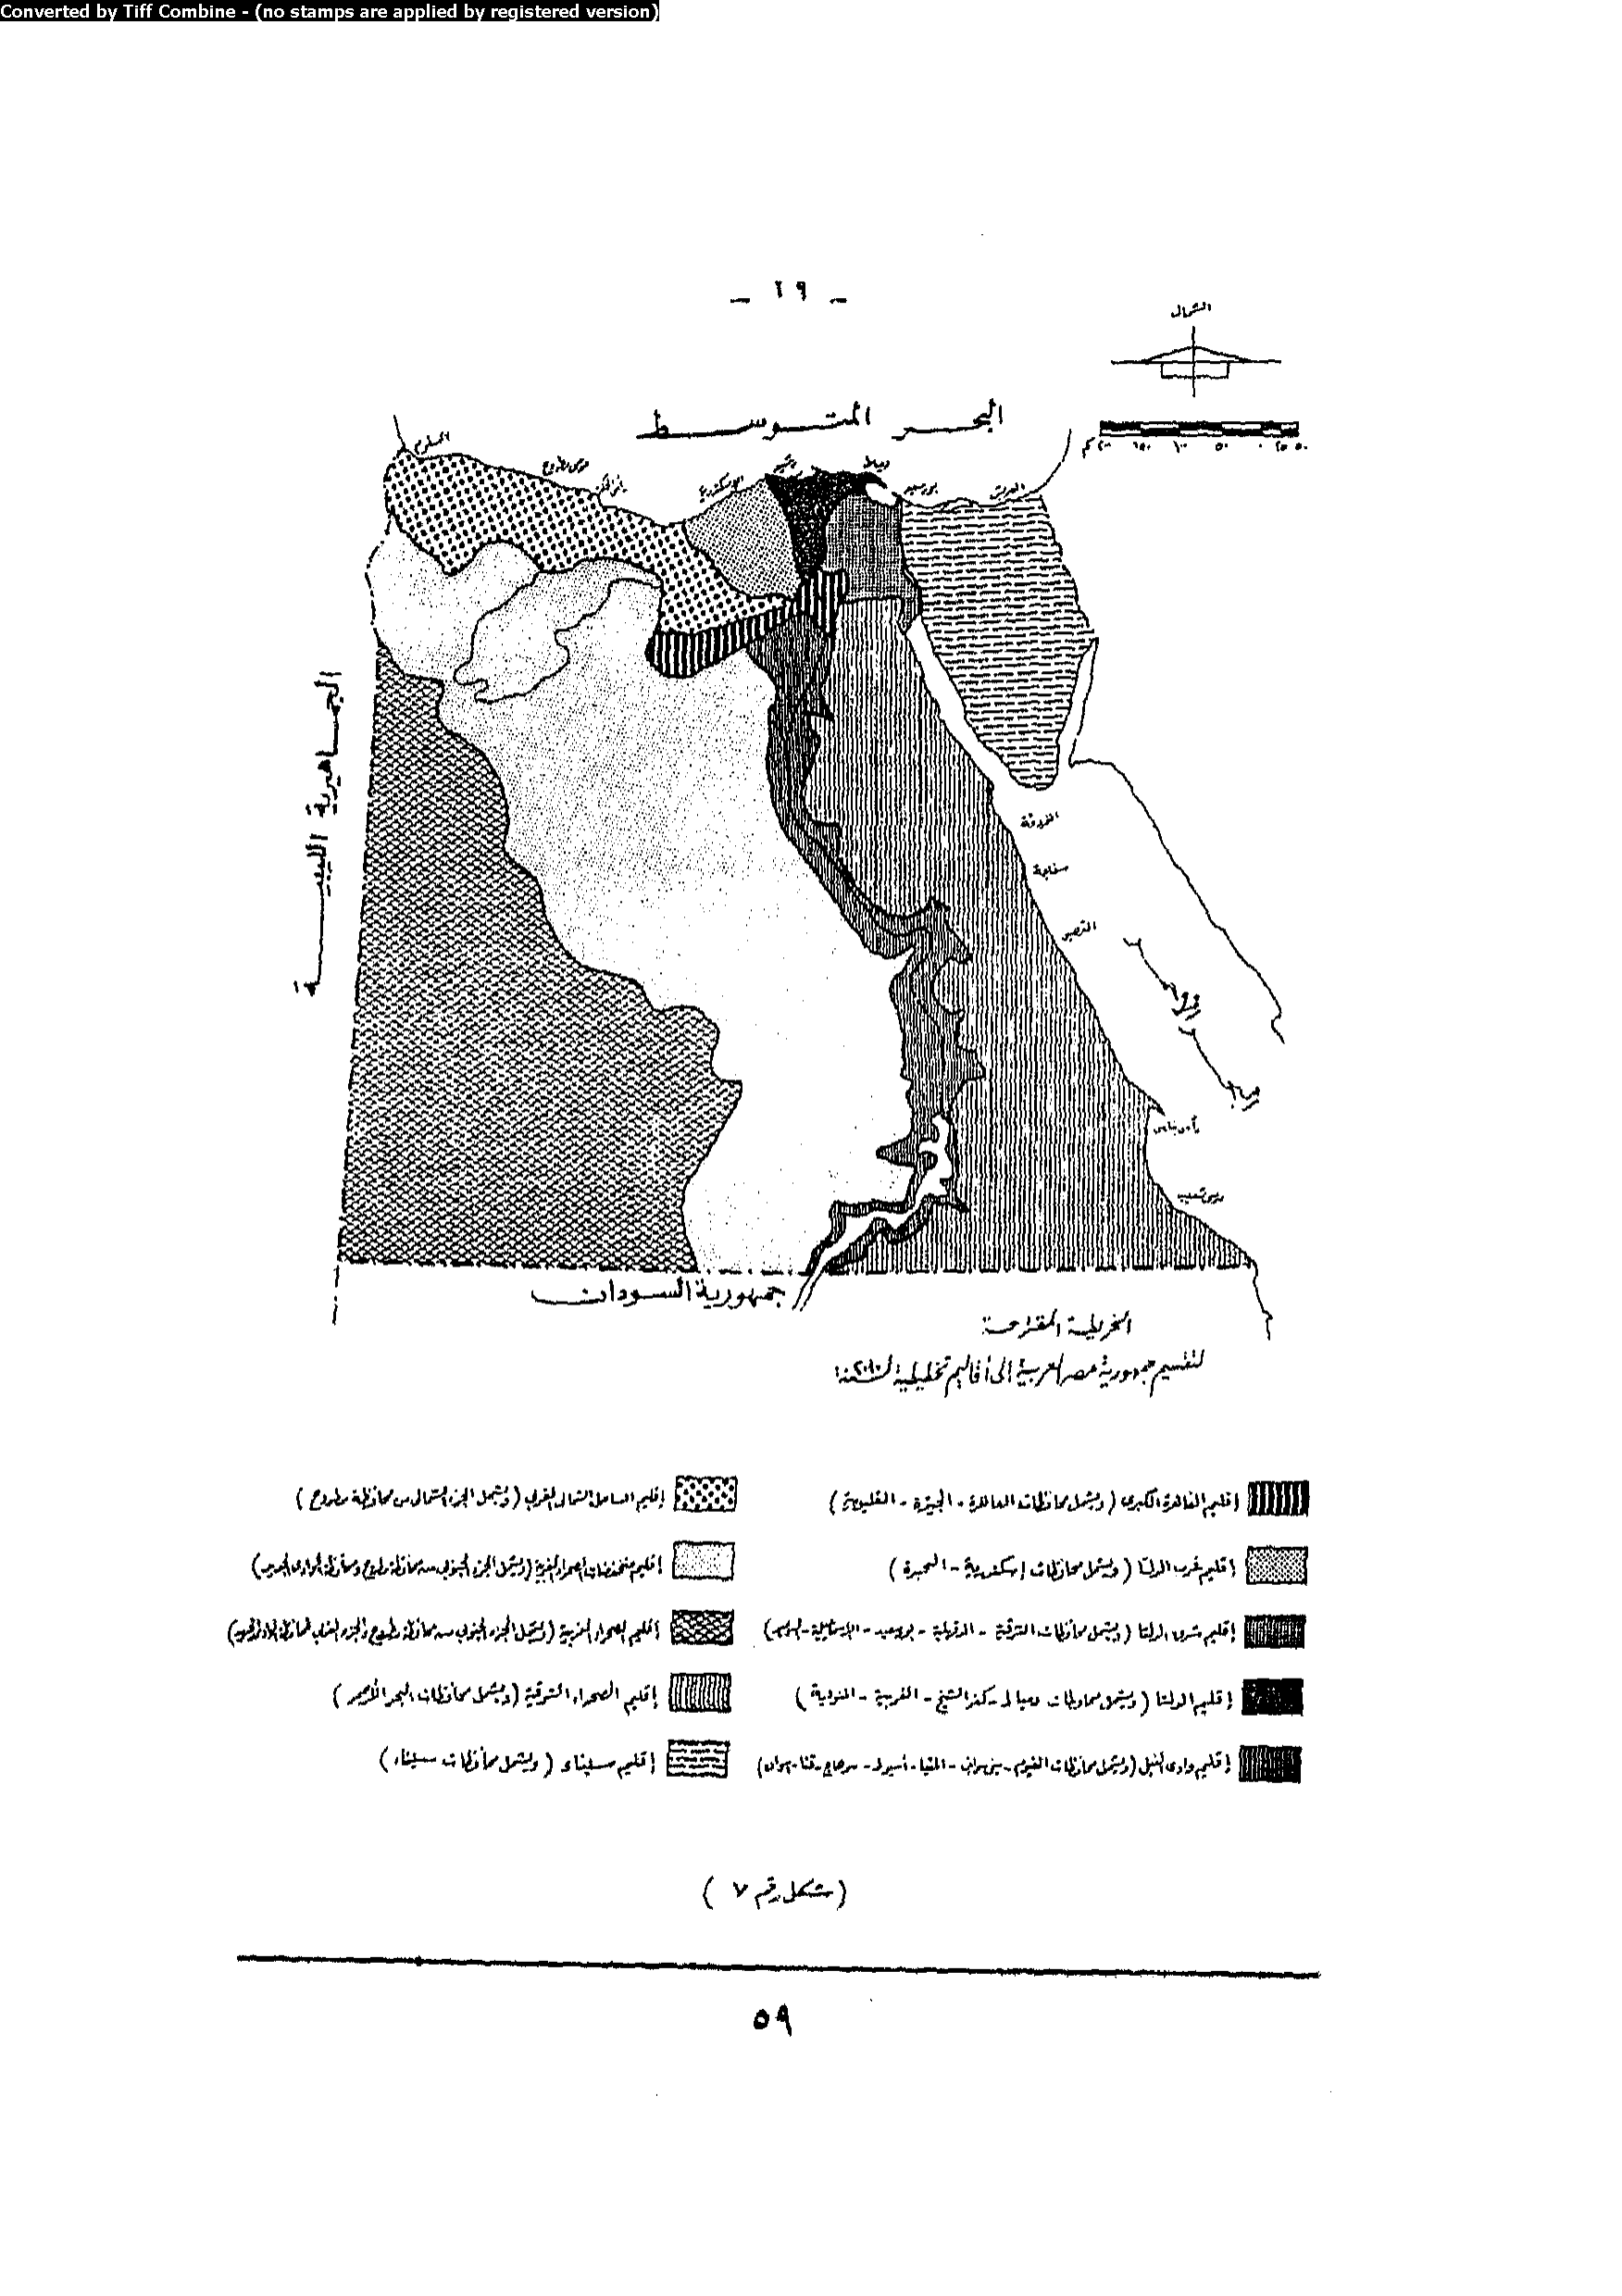 Converted by Tiff Combine - (no stamps are applied by registered version)
- ٢٩ -
الشمال
البحر المتوسط
السلوم
مرسى مطروح
الإسكندرية
رشيد
دمياط
بورسعيد
العريش
الجماهيرية الليبية
الغردقة
سفاجة
القصير
جمهورية السودان
الخريطة المقترحة
لتقسيم جمهورية مصر العربية إلى أقاليم تخطيطية لسنة
إقليم القاهرة الكبرى (ويشمل محافظات القاهرة - الجيزة - القليوبية)
إقليم غرب الدلتا (ويشمل محافظات إسكندرية - البحيرة)
إقليم شرق الدلتا (ويشمل محافظات الشرقية - الدقهلية - بورسعيد - الإسماعيلية - السويس)
إقليم الدلتا (ويشمل محافظات دمياط - كفر الشيخ - الغربية - المنوفية)
إقليم وادى النيل (ويشمل محافظات الفيوم - بنى سويف - المنيا - أسيوط - سوهاج - قنا - أسوان)
إقليم الساحل الشمالى الغربى (ويشمل الجزء الشمالى من محافظة مطروح)
إقليم منخفضات الصحراء الغربية (ويشمل الجزء الجنوبى من محافظة مطروح ومحافظة الوادى الجديد)
إقليم الصحراء الغربية (ويشمل الجزء الجنوبى من محافظة مطروح والجزء الغربى لمحافظة الوادى الجديد)
إقليم الصحراء الشرقية (ويشمل محافظات البحر الأحمر)
إقليم سيناء (ويشمل محافظات سيناء)
(شكل رقم ٧)
٥٩